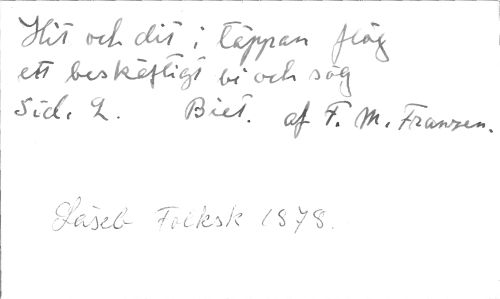 Hit och dit i täppan flög
ett beskäftigt bi och sög
Sid. 2. Biet. af F. M. Franzen.
Läseb Folksk 1878.